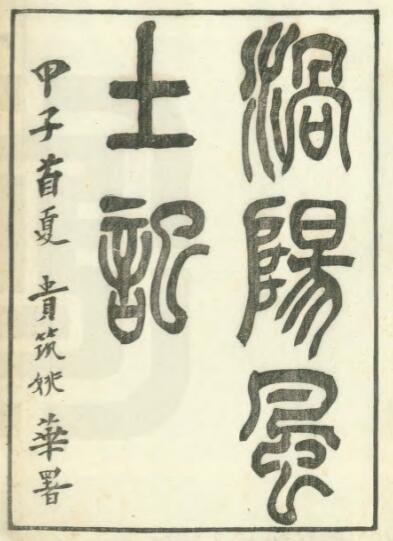 渦陽風
土記
甲子首夏 貴筑姚華署